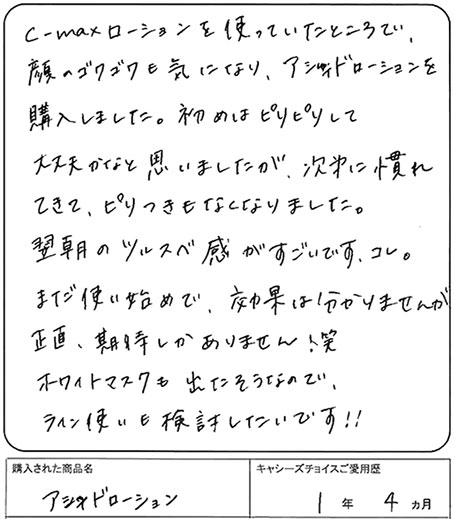 C-maxローションを使っていたところで、
顔のゴワゴワも気になり、アシッドローションを
購入しました。初めはピリピリして
大丈夫かなと思いましたが、次第に慣れ
てきて、ピリつきもなくなりました。
翌朝のツルスベ感がすごいです、コレ。
まだ使い始めで、効果は分かりませんが
正直、期待しかありません!笑
ホワイトマスクも出たそうなので、
ライン使いも検討したいです!!
購入された商品名
キャシーズチョイスご愛用歴
アシッドローション
1年4ヵ月